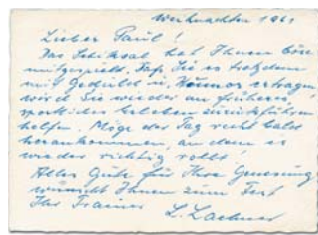 Weihnachten 1961
Lieber Paul!
Das Schicksal hat Ihnen böse
mitgespielt. Daß Sie es trotzdem
mit Geduld u. Humor ertragen
wird Sie wieder an früheres,
sportliches Erleben zurückführen
helfen. Möge der Tag recht bald
herankommen, an dem es
wieder richtig rollt!
Alles Gute für Ihre Genesung
wünscht Ihnen zum Fest
Ihr Trainer